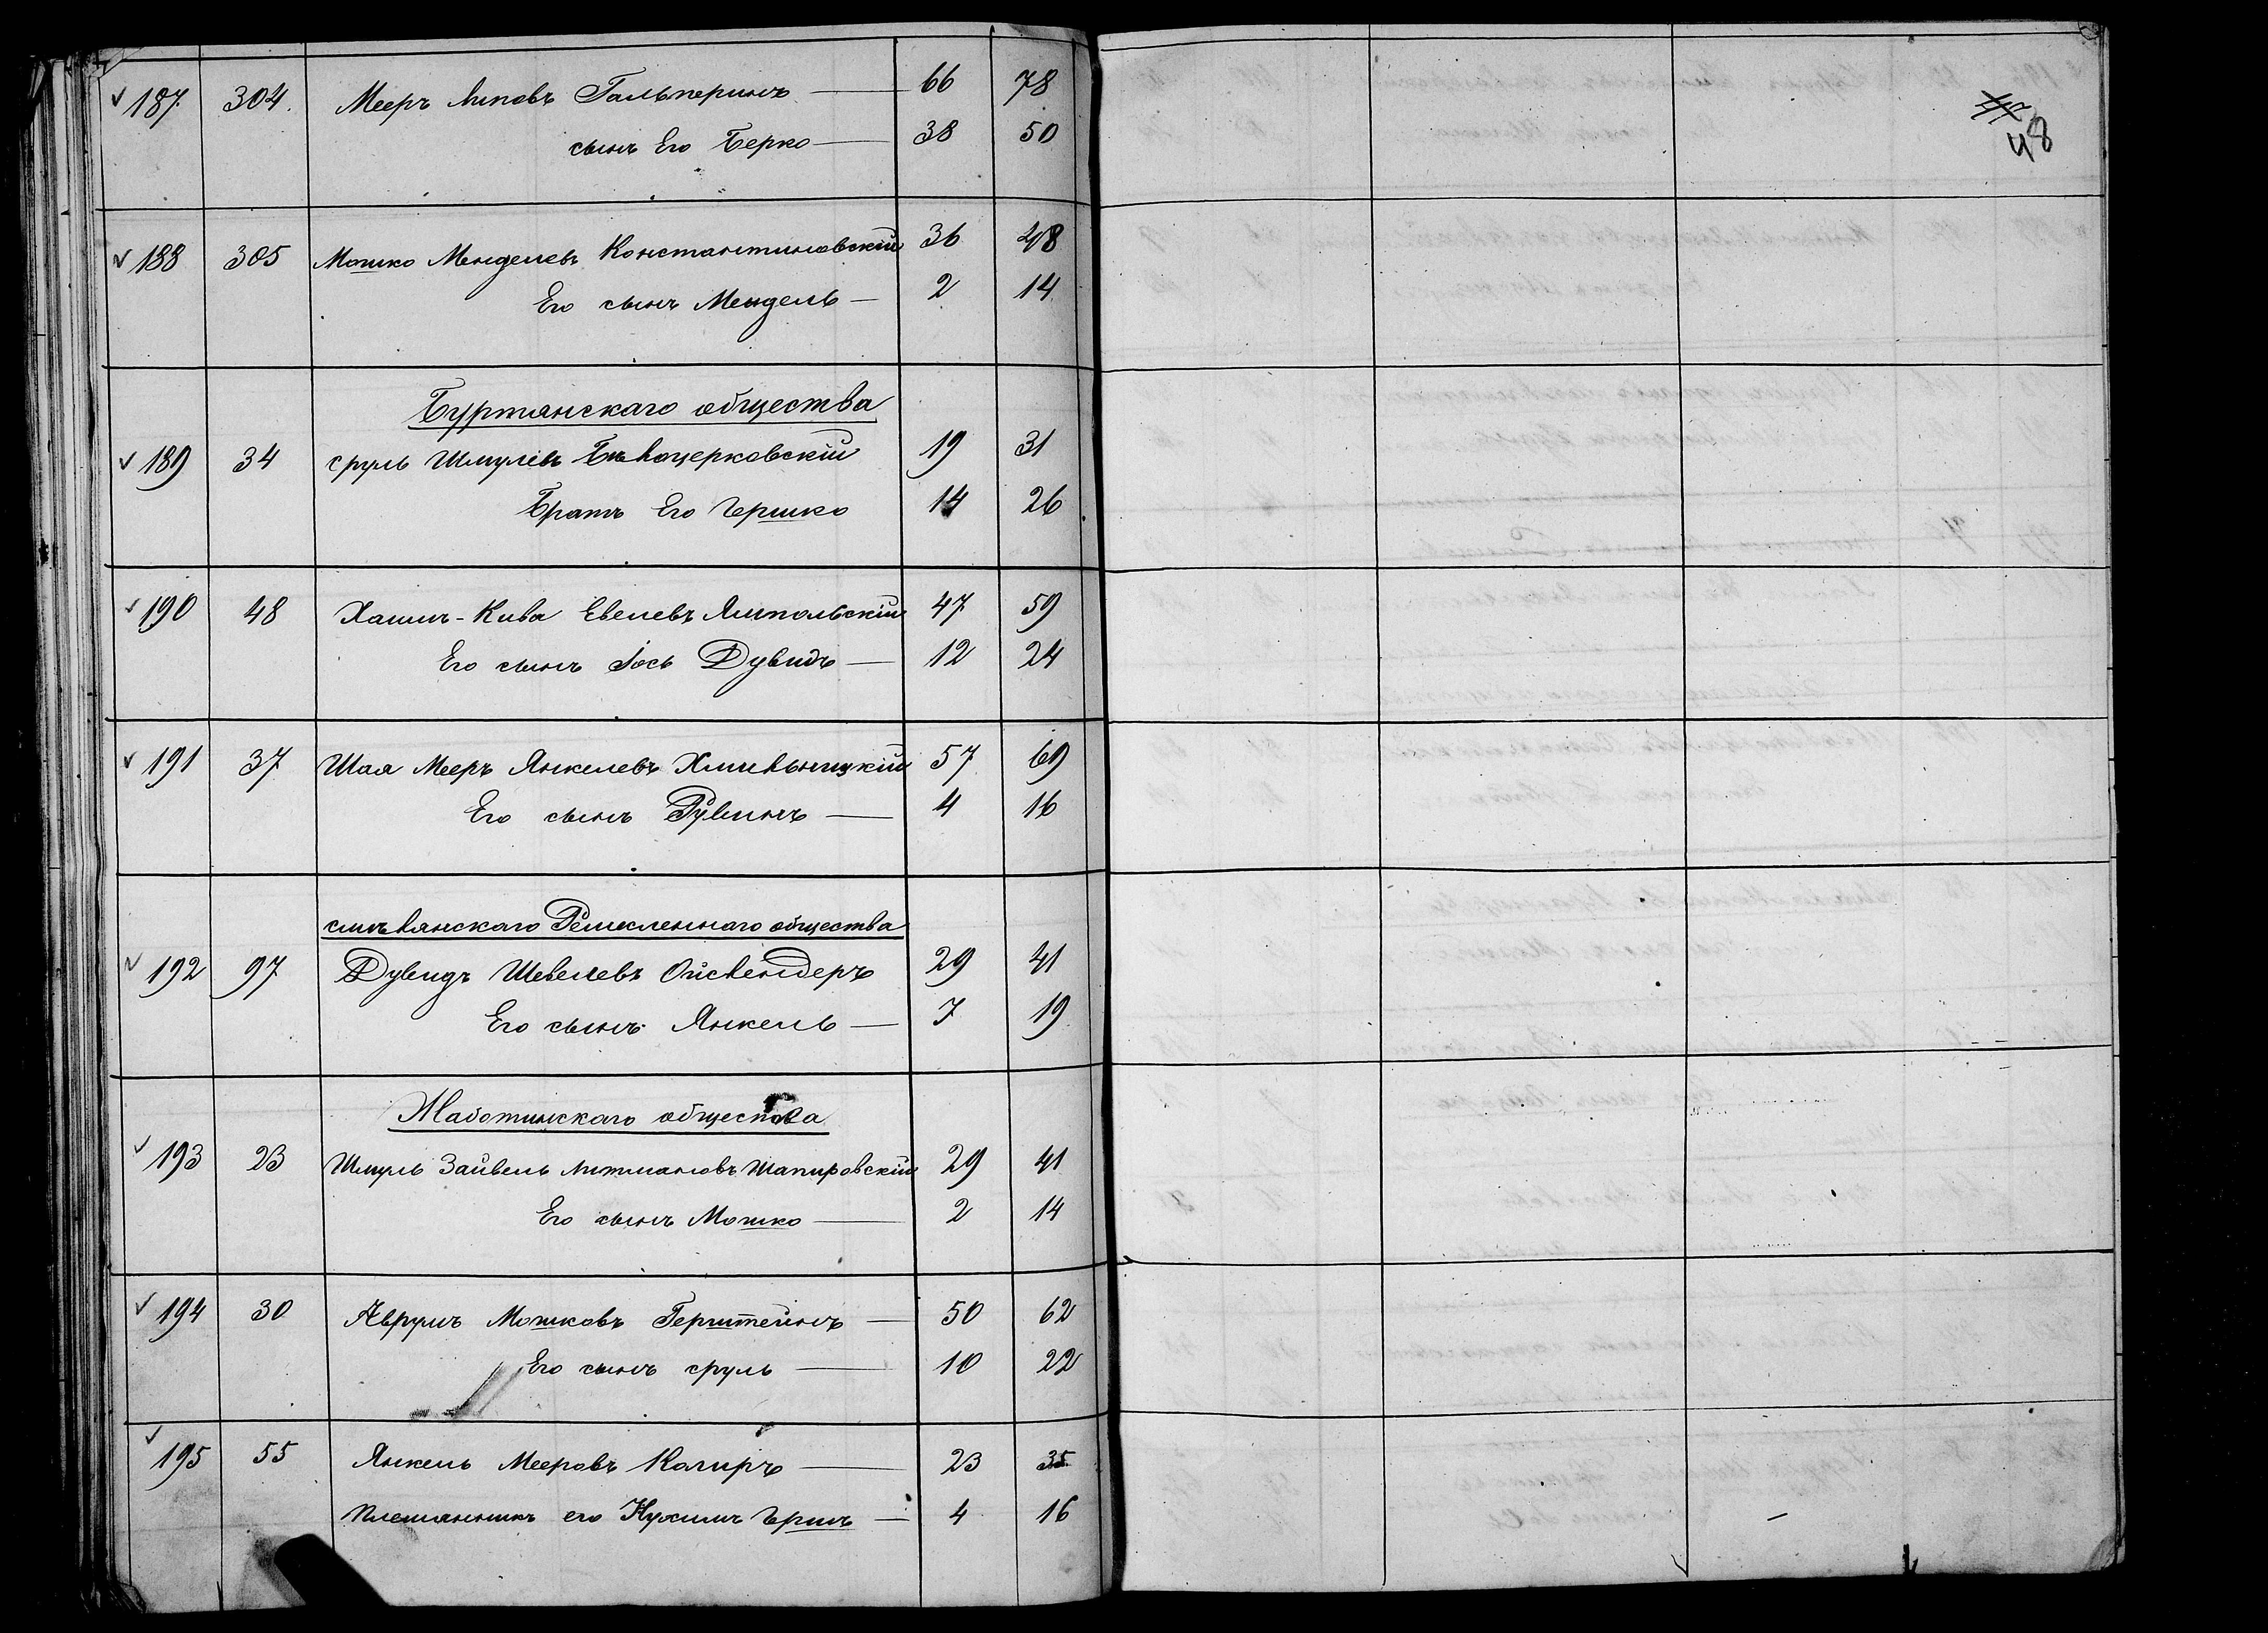 187 304. Мееръ Липовъ Гальперинъ — 66 78
сынъ Его Берко — 38 50
188 305 Мошко Менделевъ Константиновскій 36 48
Его сынъ Мендель — 2 14
Буртянскаго общества
189 34 сруль Шмулевъ Бѣлоцерковскій 19 31
Братъ Его Гершко 14 26
190 48 Хаимъ-Кива Евелевъ Ямпольскій 47 59
Его сынъ Іось Дувидъ — 12 24
191 37 Шая Мееръ Янкелевъ Хмильницкій 57 69
Его сынъ Рувинъ — 4 16
смѣлянскаго Ремесленнаго общества
192 97 Дувидъ Шевелевъ Ойслендеръ 29 41
Его сынъ Янкель — 7 19
Жаботинскаго общества
193 23 Шмуль Зайвель Литмановъ Шапировскій 29 41
Его сынъ Мошко — 2 14
194 30 Аврумъ Мошковъ Герштейнъ — 50 62
Его сынъ сруль — 10 22
195 55 Янкель Мееровъ Кагиръ — 23 35
Племянникъ его Нухимъ Гершъ — 4 16
48